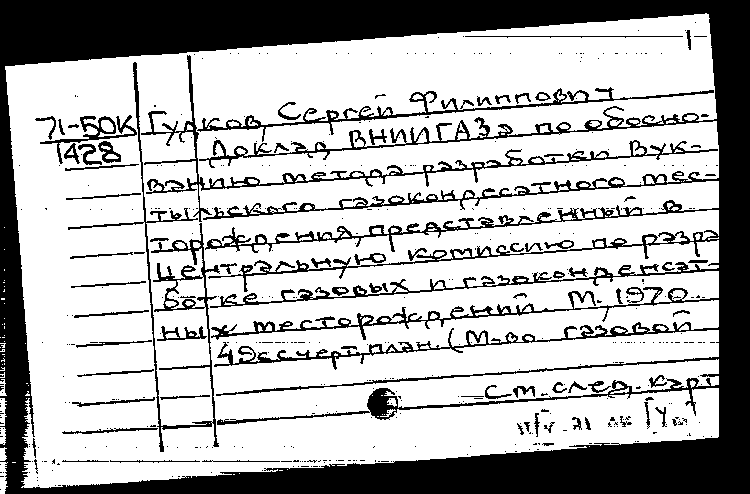 1
71-БОК Гудков, Сергей Филиппович
1428 Доклад ВНИИГАЗа по обосно-
ванию метода разработки Вук-
тыльского газокондесатного мес-
торождения, представленный в
Центральную комиссию по разра
ботке газовых и газоконденсат-
ных месторождений. М., 1970.
49с с черт, план. (М-во газовой
см. след. карт